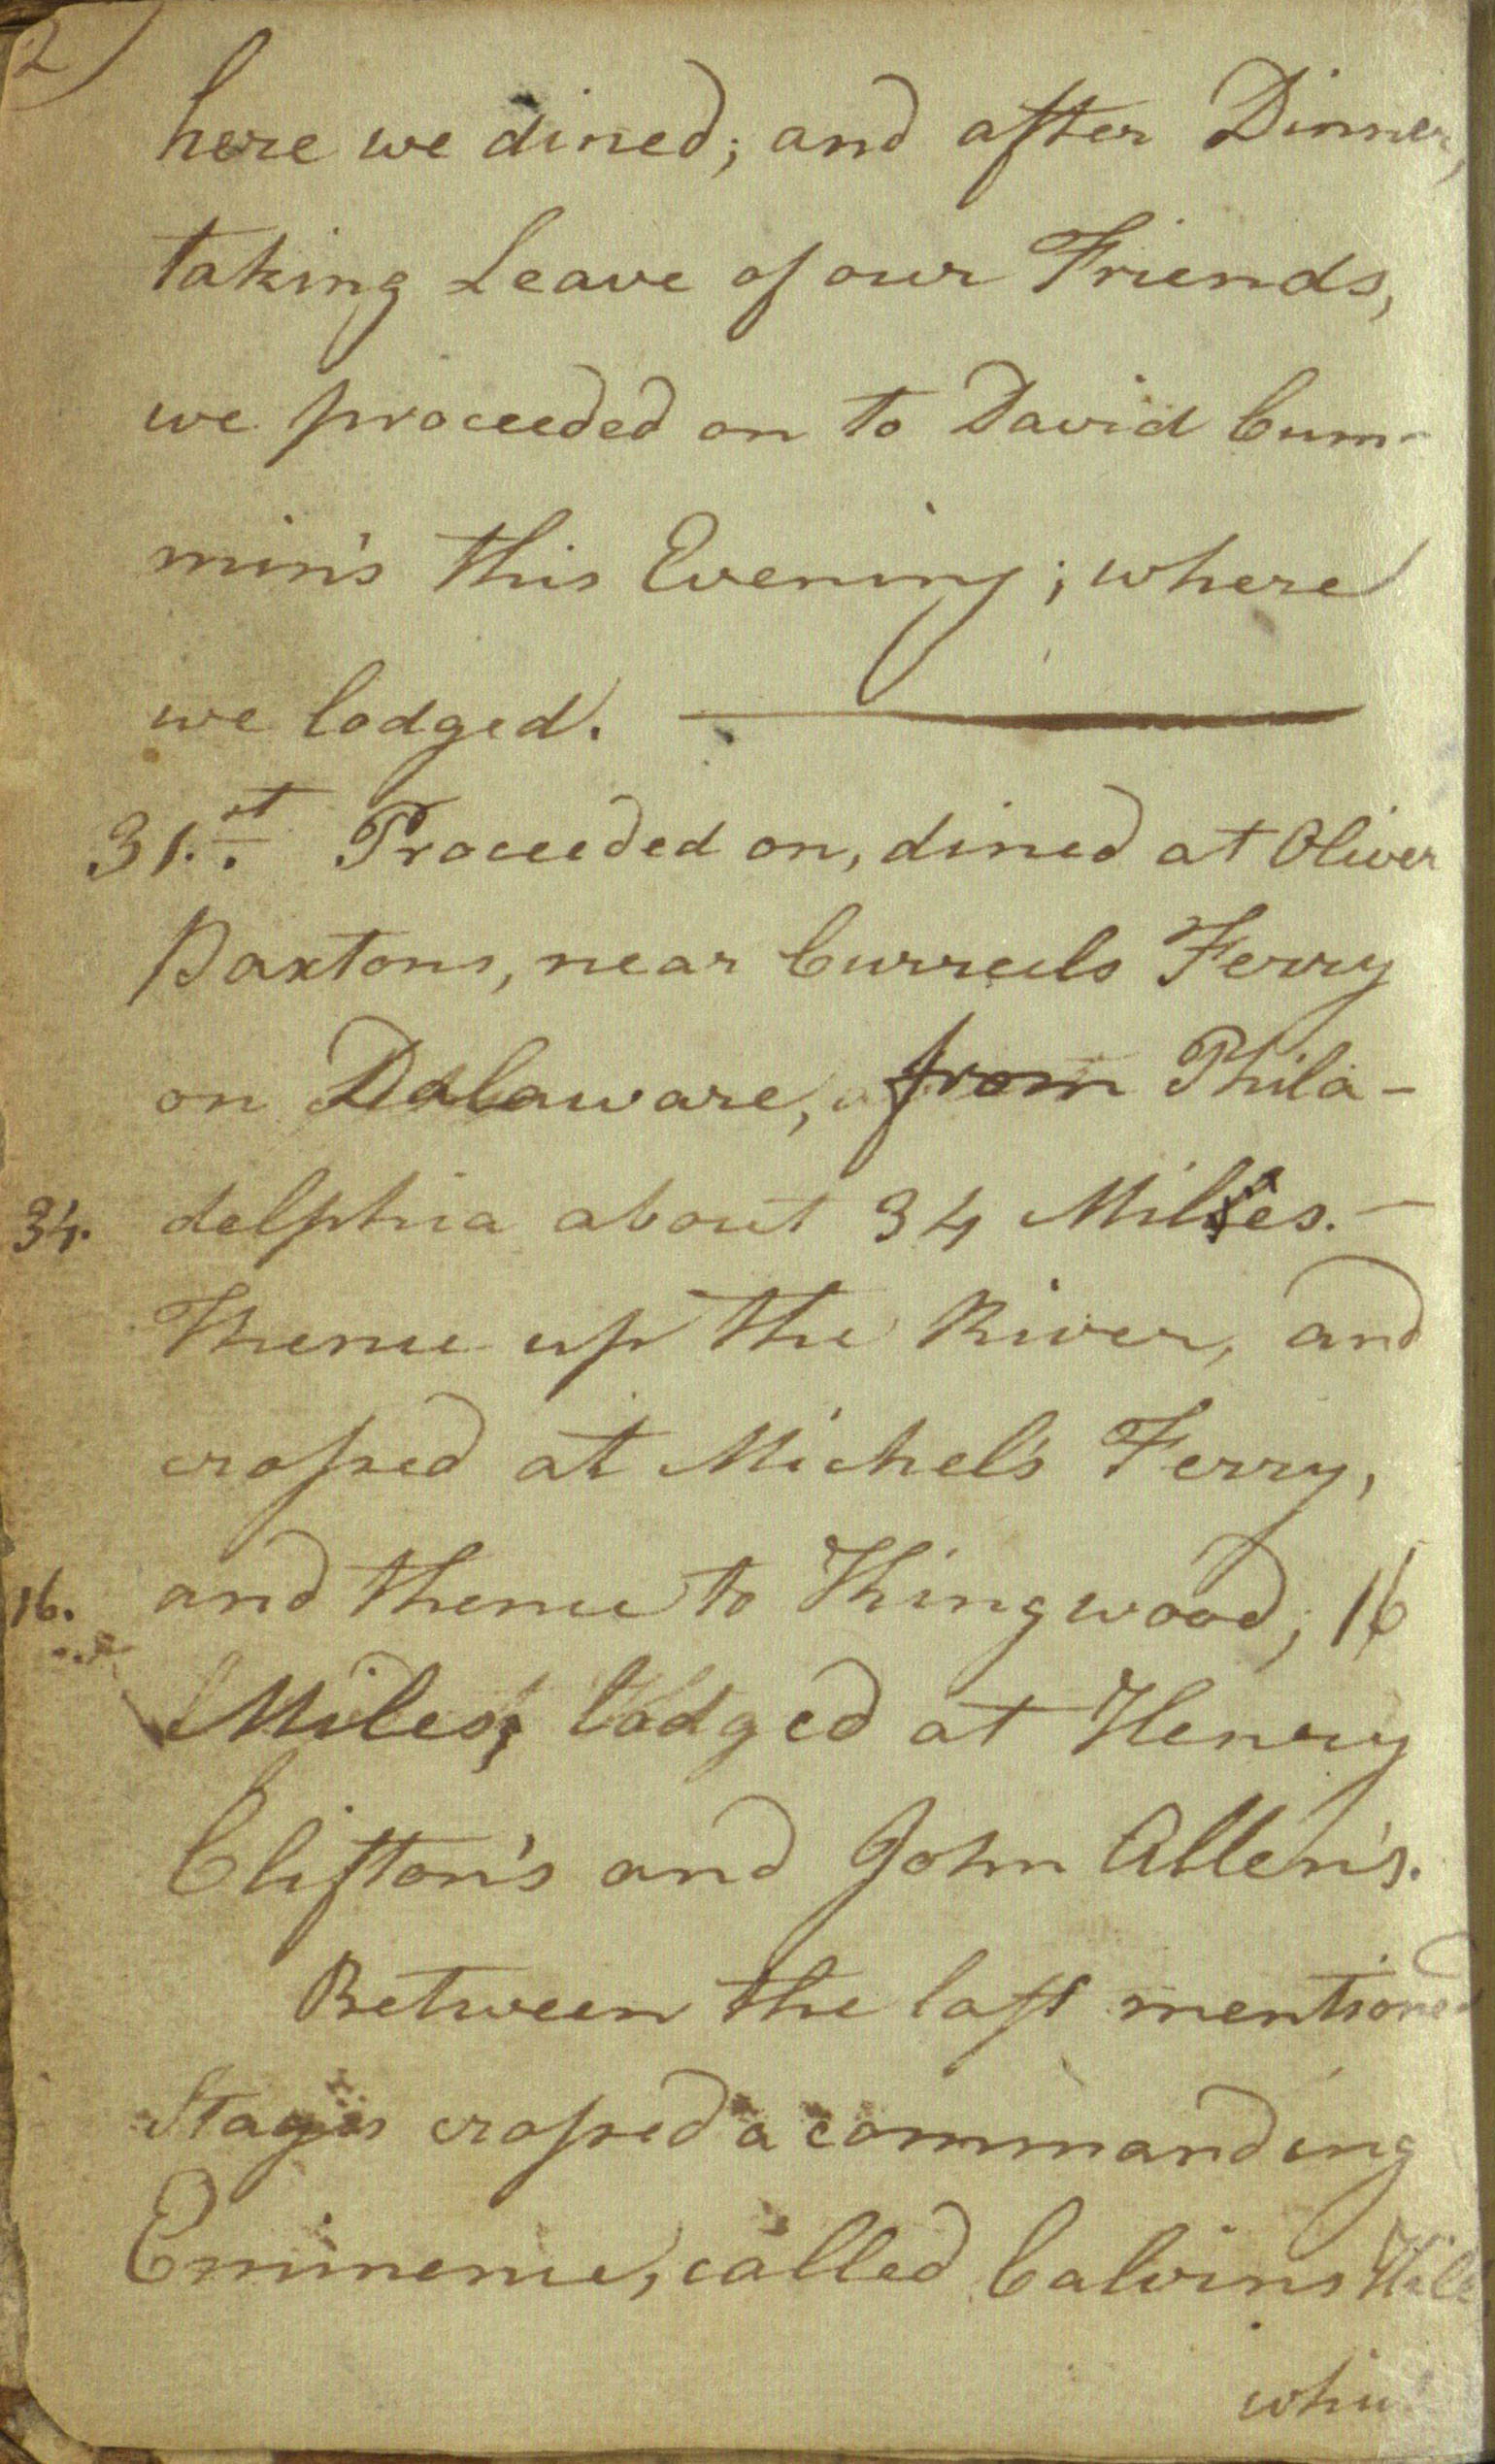 2)
here we dined; and after Dinner,
taking Leave of our Friends,
we proceeded on to David Cum-
min's this Evening; where
we lodged.
31.st Proceeded on, dined at Oliver
Paxtons, near Currels Ferry
on Delaware, from Phila-
34. delphia about 34 Miles.—
Thence up the River, and
crossed at Michel's Ferry,
16. and thence to Kingwood; 16
Miles; lodged at Henry
Clifton's and John Allen's.
Between the last mentioned
Stages crossed a commanding
Eminence, called Calvins Hill